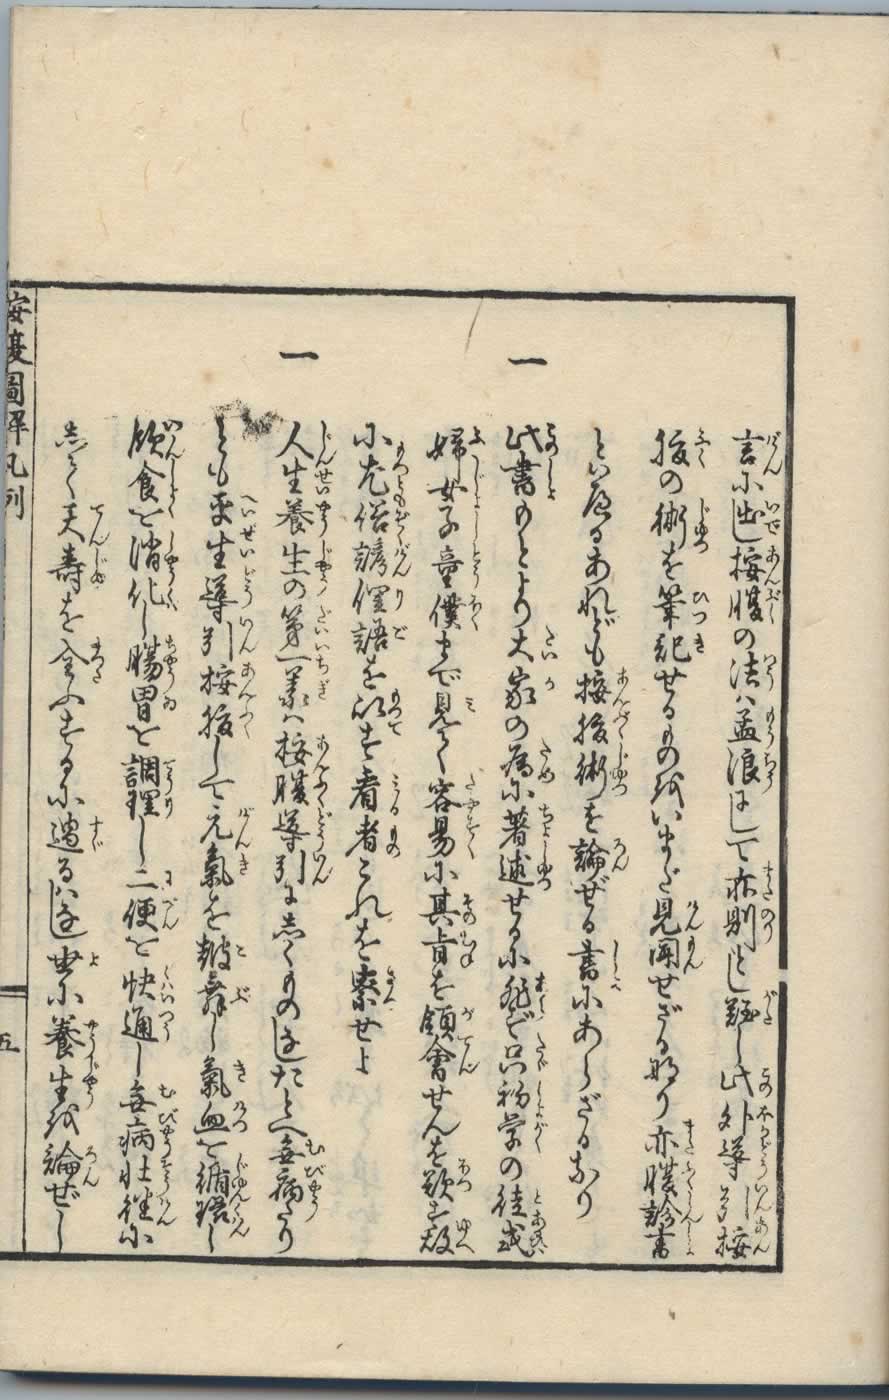 言に出し按腹の法は孟浪にして亦則とし難し此外導引按
腹の術を筆記せるもの我いまだ見聞せざる也り亦腹診書
といへるあれども按腹術を論ぜる書にあらざるなり
一 此書もとより大家の為に著述せるに非ず只初学の徒或
婦女子童僕まで見て容易に其旨を領會せんを欲す故
に尤俗諺俚語を以す看者これを察せよ
一 人生養生の第一義は按腹導引にしくものはなしたとへ無病たり
とも平生導引按腹して元氣を皷舞し氣血を循環し
飲食を消化し腸胃を調理し二便を快通し無病壮健に
して天壽を全ふするに過るはなし世に養生を論ぜし
按腹圖解凡例
五